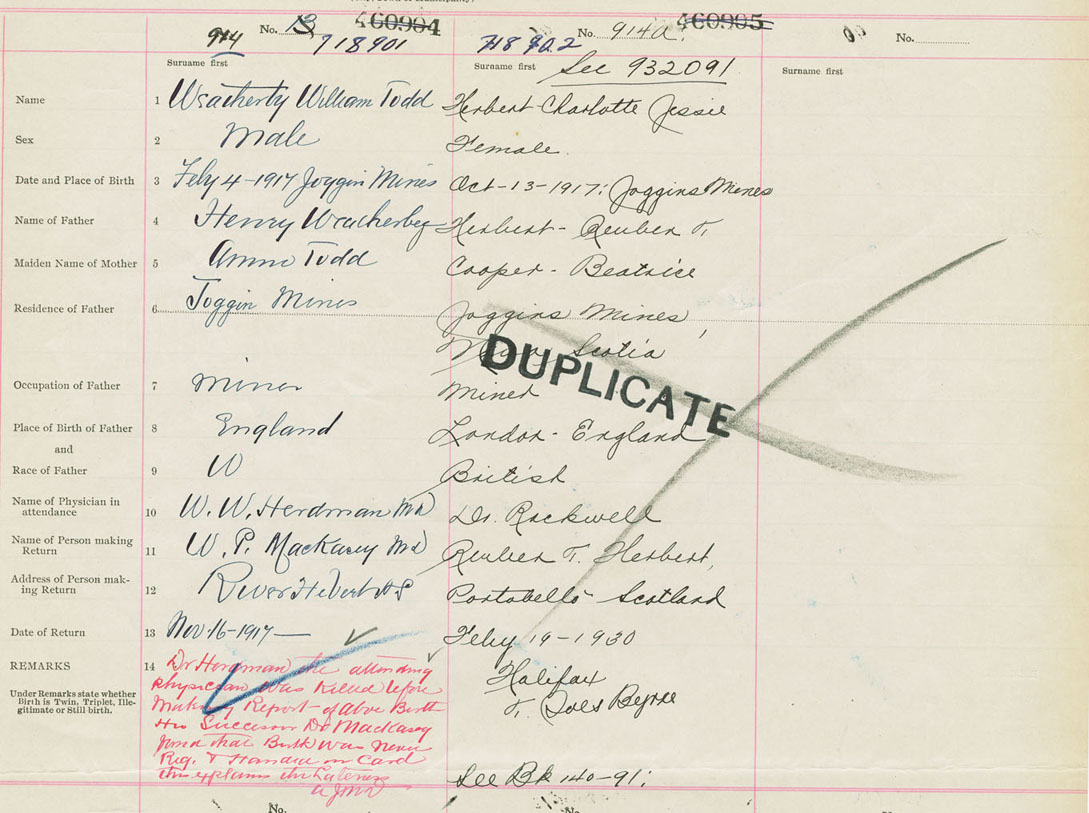 No. 13 460904
914 718901
718902 No. 914a. 460905
No.
Surname first
Surname first See 932091
Surname first
Name 1 Weatherby William Todd Herbert Charlotte Jessie
Sex 2 Male Female.
Date and Place of Birth 3 Feby 4-1917 Joggin Mines Oct-13-1917; Joggins Mines
Name of Father 4 Henry Weatherbey Herbert - Reuben T.
Maiden Name of Mother 5 Todd Cooper - Beatrice
Residence of Father 6 Joggin Mines Joggins Mines,
Nova Scotia
DUPLICATE
Occupation of Father 7 Miner Miner
Place of Birth of Father 8 England London - England
and
Race of Father 9 W British
Name of Physician in
attendance 10 W. W. Herdman MD Dr. Rockwell
Name of Person making
Return 11 W. P. Mackasey MD Reuben T. Herbert,
Address of Person mak-
ing Return 12 River Hebert NS Portobello - Scotland
Date of Return 13 Nov 16-1917 Feby 19-1930
REMARKS 14
Under Remarks state whether
Birth is Twin, Triplet, Ille-
gitimate or Still birth.
Dr the attending
Physician was killed before
Making Report of above Birth
His Successor Dr Mackasey
found that Birth was never
Reg. & Handed in Card
this explains the Lateness
Halifax
Byrne
See Bk 140-91;
No.
No.